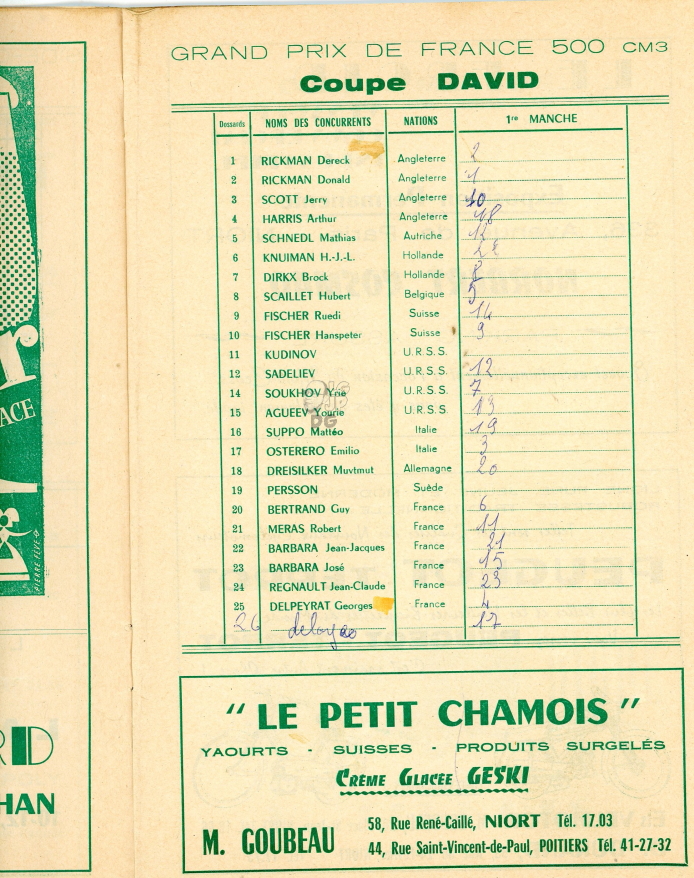 GRAND PRIX DE FRANCE 500 CM3
Coupe DAVID
Dossards NOMS DES CONCURRENTS NATIONS 1re MANCHE
1 RICKMAN Dereck Angleterre 2
2 RICKMAN Donald Angleterre 1
3 SCOTT Jerry Angleterre 10
4 HARRIS Arthur Angleterre 18
5 SCHNEDL Mathias Autriche
6 KNUIMAN H.-J.-L. Hollande
7 DIRKX Brock Hollande 8
8 SCAILLET Hubert Belgique 5
9 FISCHER Ruedi Suisse 14
10 FISCHER Hanspeter Suisse 9
11 KUDINOV U.R.S.S.
12 SADELIEV U.R.S.S. 12
14 SOUKHOV Yrie U.R.S.S. 7
15 AGUEEV Yourie U.R.S.S. 13
16 SUPPO Mattéo Italie 19
17 OSTERERO Emilio Italie 3
18 DREISILKER Muvtmut Allemagne 20
19 PERSSON Suède
20 BERTRAND Guy France 6
21 MERAS Robert France 11
22 BARBARA Jean-Jacques France 21
23 BARBARA José France 15
24 REGNAULT Jean-Claude France 23
25 DELPEYRAT Georges France 4
26 17
" LE PETIT CHAMOIS "
YAOURTS - SUISSES - PRODUITS SURGELÉS
CRÈME GLACÉE GESKI
M. GOUBEAU
58, Rue René-Caillé, NIORT Tél. 17.03
44, Rue Saint-Vincent-de-Paul, POITIERS Tél. 41-27-32
ACE
PIERRE FÈVE
HAN